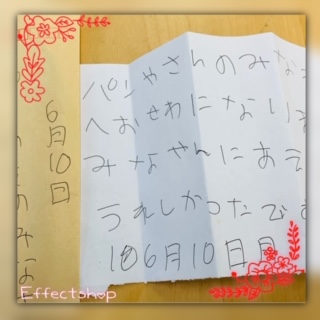 6月10日
パンやさんのみな
へおせわになりま
みなさんにあえ
うれしかったです
106月10日月
のみな
Effectshop